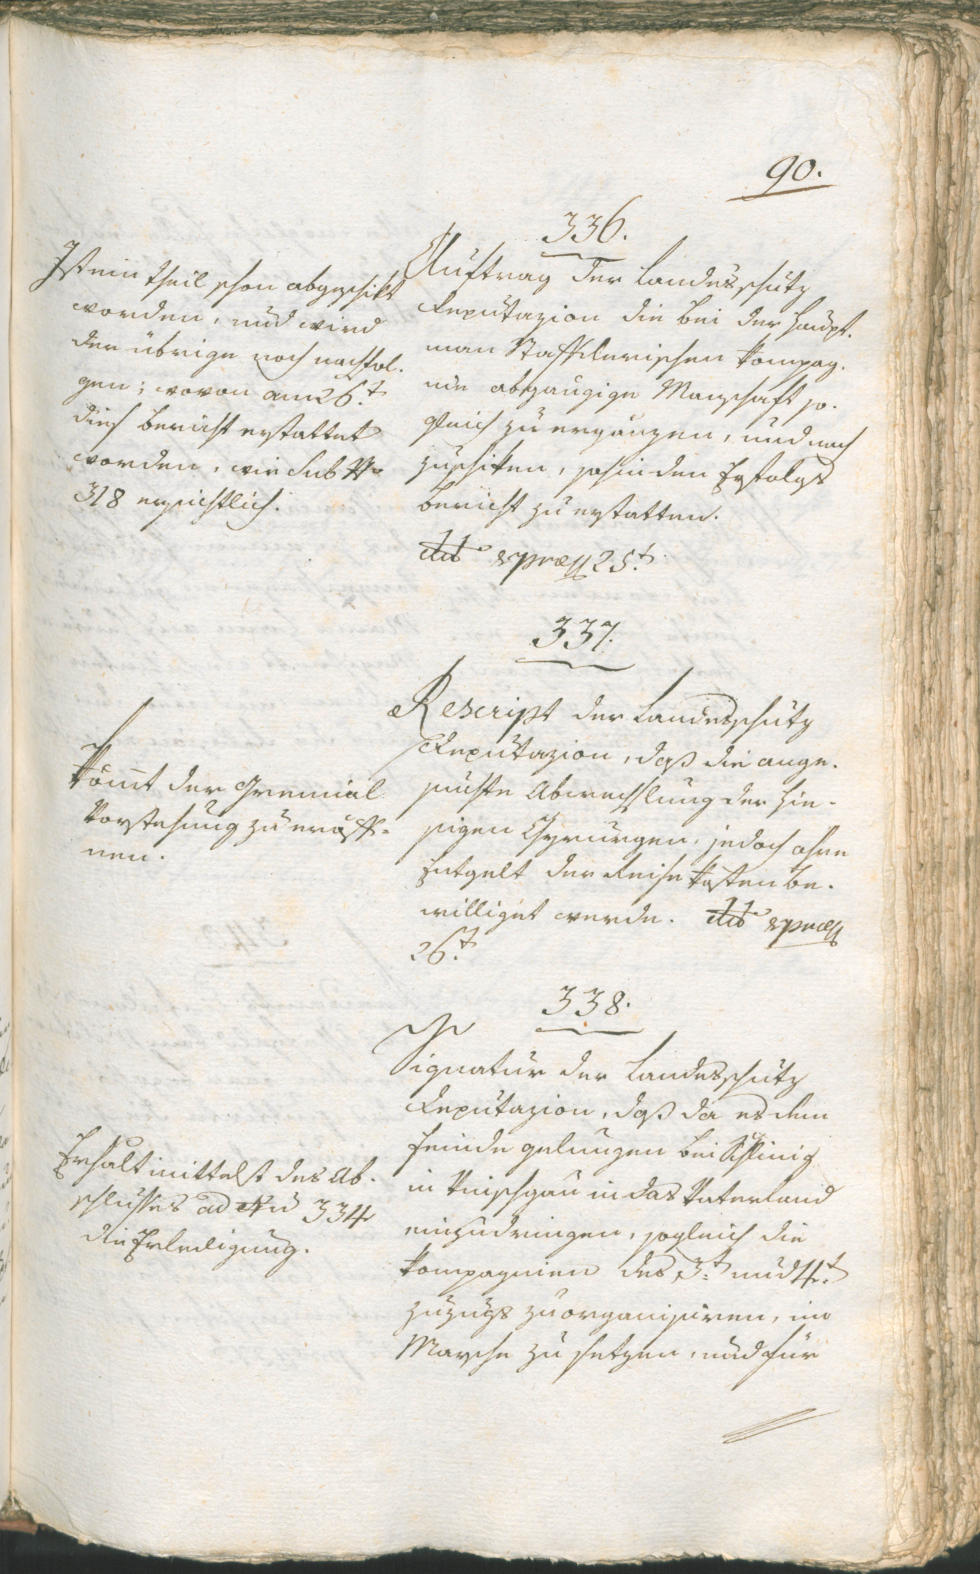 90.
336.
Auftrag der Landesschutz
Deputazion die bei der Haupt-
man Stafflerischen Kompag-
nie abgängige Manschaft so-
gleich zu ergänzen, und nach
zuschiken, sohin den Erfolgs
Bericht zu erstatten.
dto & præs 25t.
Ist ein theil schon abgeschikt
worden, und wird
der übrige noch nachfol-
gen; wovon am 26t.
dies Bericht erstattet
worden, wie sub No
318 ersichtlich.
337.
Rescript der Landesschutz
Deputazion, daß die ange-
suchte Abwechslung der hie-
sigen Chyrurgen, jedoch ohne
Entgelt der Reise kösten be-
williget werde. dto & præs
26t.
Kömt der Gremial
Vorstehung zu eröff-
nen.
338.
Signatur der Landesschutz
Deputazion, daß da es dem
Feinde gelungen bei Schlinig
in Vinschgau in das Vaterland
einzudringen, sogleich die
Kompagnien des 3t. und 4t.
Zuzugs zu organisiren, in
Marsche zu setzen, und für
Erhalt mittelst des Ab-
schlusses ad Nrū 334
die Erledigung.